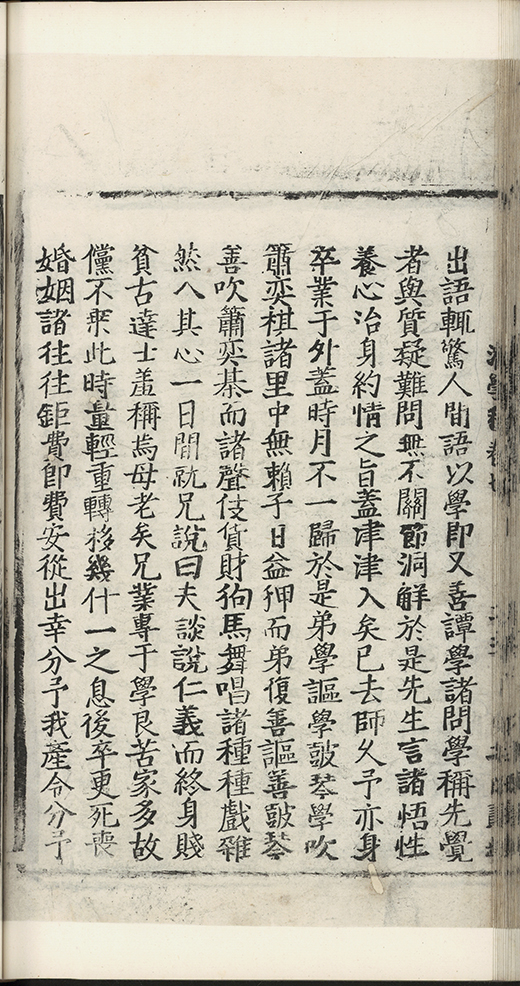 出語輒驚人間語以學即又善譚學諸問學稱先覺
者與質疑難問無不關節洞解於是先生言諸悟性
養心治身約情之旨蓋津津入矣已去師久予亦身
卒業于外蓋時月不一歸於是弟學謳學鼓琴學吹
簫奕棋諸里中無賴子日益狎而弟復善謳善鼓琴
善吹簫奕棊而諸聲伎貨財狗馬舞唱諸種種戲雜
然入其心一日間就兄說曰夫談說仁義而終身賤
貧古達士羞稱焉母老矣兄業專于學良苦家多故
儻不乘此時量輕重轉移幾什一之息後卒更死喪
婚姻諸往往鉅費即費安從出幸分予我產令分予